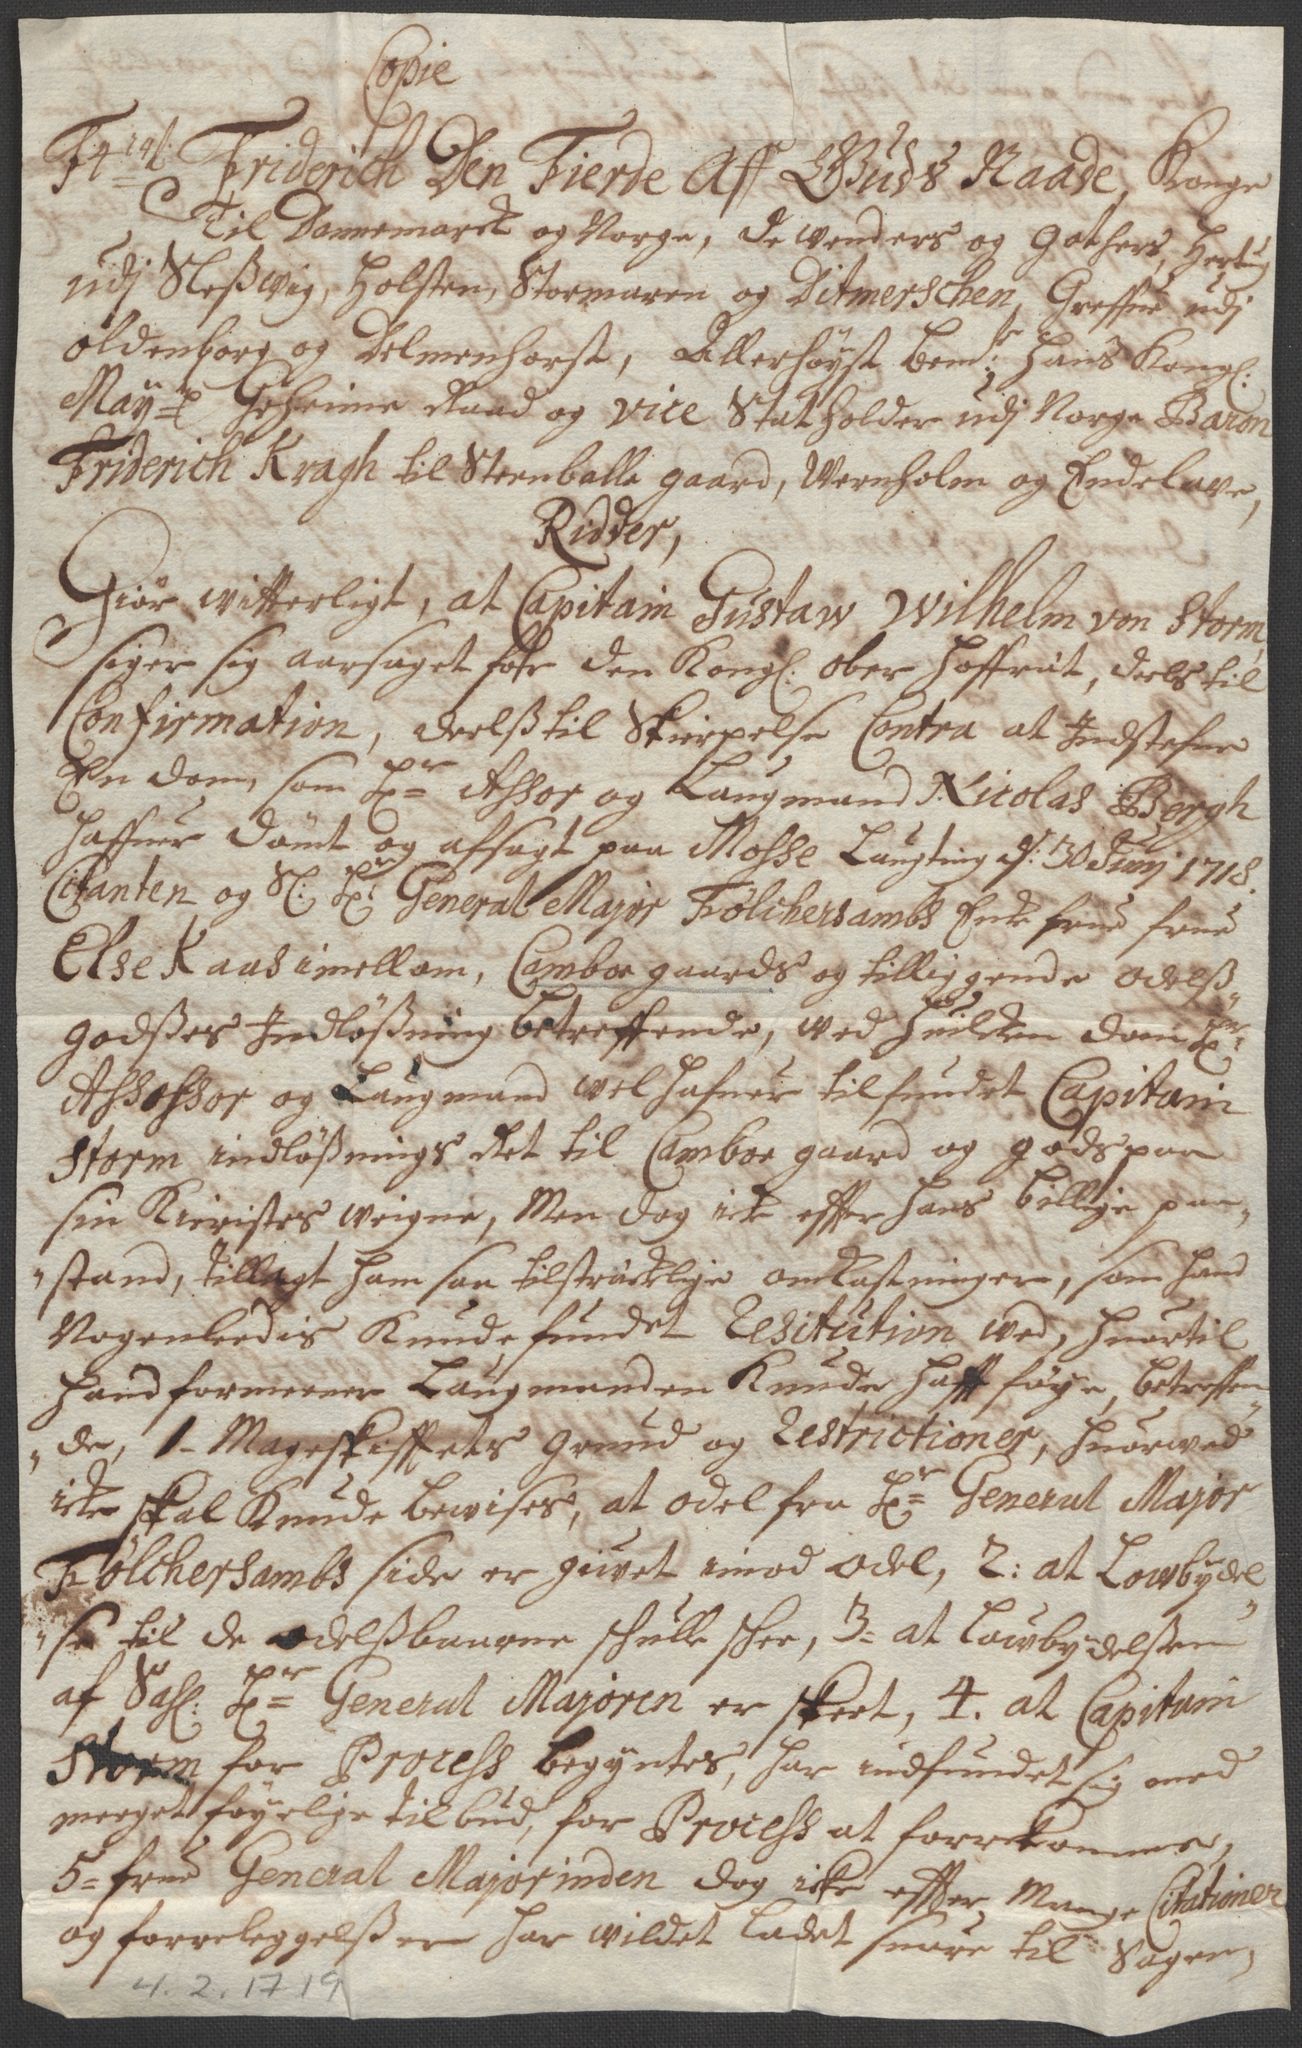 Copie
F4tus Friderich Den Fierde Aff Guds Naade, Konge
Til Dannemarck og Norge, de Wenders og Gothers, Hertug
udj Slesswig, Holsten, Stormaren og Ditmerschen, Greffue udj
oldenborg og Delmenhorst, Allerhøyst bem:te Hans Kongl:
May=tz Geheime Raad og vice Statholder udj Norge Baron
Friderich Kragh til Steenballe gaard, Wernholm og Endelave,
Ridder,
Giør witterligt, at Capitain Gustaw Wilhelm von Storm,
siger sig aarsaget for den Kongl. ober Hoffræt, deels til
Confirmation, deelß til Skierpelse Contra at Indstefne
En dom, som Hr= Assor og Laugmand Nicolas Bergh
haffuer dømt og afsagt paa Mosse Laugting d: 30 Junj 1718.
Citanten og Sl: Hr: General Major Tølchersambs Enke frue frue
Else Kaas imellom, Camboe gaards og tilliggende odelß
godßes Indløßning betreffende, wed hvilken dom Hr:
Assessor og Laugmand wel hafuer tilfundet Capitain
Storm indløßnings Ret til Camboe gaard og gods paa
sin Kieristes weigne, Men dog icke effter hans billige paa„
„stand, tillagt ham saa tilstræcklige omkastninger, som hand
Nogenledis Kunde fundet Restitution wed, huortil
hand formeener Laugmanden Kunde hafft føye, betreffen„
„de, 1- Mageskifftets Grund og Restrictioner, huorwed
icke skal Kunde bewises, at odel fra Hr= General Major
Tølchersambs side er giuet imod odel, 2: at Lowbydel„
„se til de odelßbaarne schulle schee, 3= at lowbydelßen
af Sahl: Hr= General Majoren er skeet, 4. at Capitain
Storm for Process begyntes, har indfundet sig med
meeget føyelige tilbud, for Process at forrekomme,
5= frue General Majorinden dog icke effter Mange Citationer
og forreleggelßer har wildet ladet suare til Sagen,
4. 2. 1719